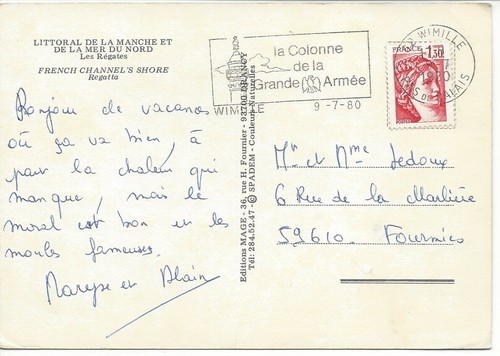 LITTORAL DE LA MANCHE ET
DE LA MER DU NORD
Les Régates
FRENCH CHANNEL'S SHORE
Regatta
Bonjour de vacances
où ça va bien, à
part la chaleur qui
manque, mais le
moral est bon et les
moules fameuses.
Maryse et Alain
Editions MAGE - 36, rue H. Fournier - 93700 DRANCY
Tél: 284.52.47 - © SPADEM - Couleurs Naturelles
la Colonne
de la
Grande Armée
WIMILLE 9-7-80
WIMILLE
PAS DE CALAIS
FRANCE
1,30
POSTES
Mr et Mme Ledoux
6 Rue de la Marlière
59610. Fourmies